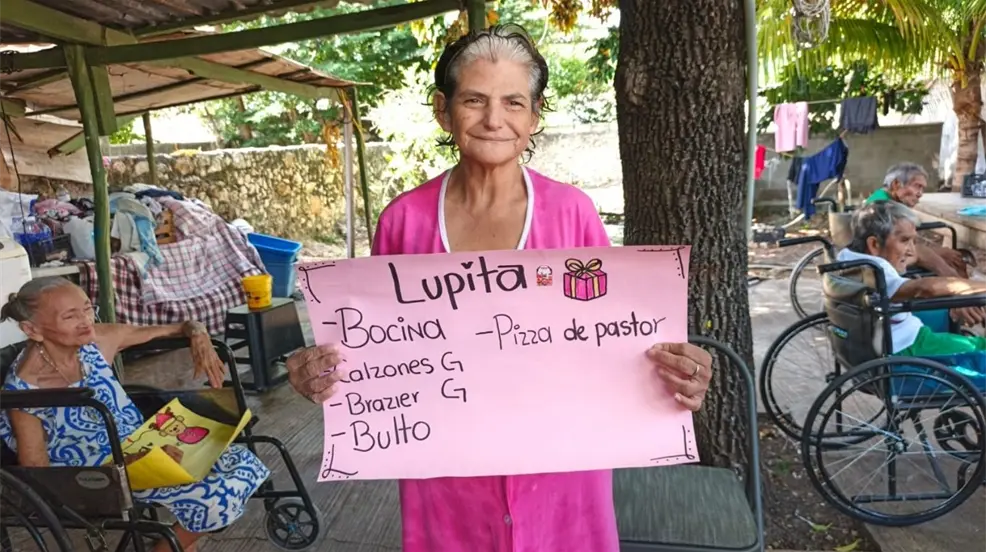 Lupita
-Bocina
-Pizza de pastor
Calzones G
-Brazier G
-Bulto